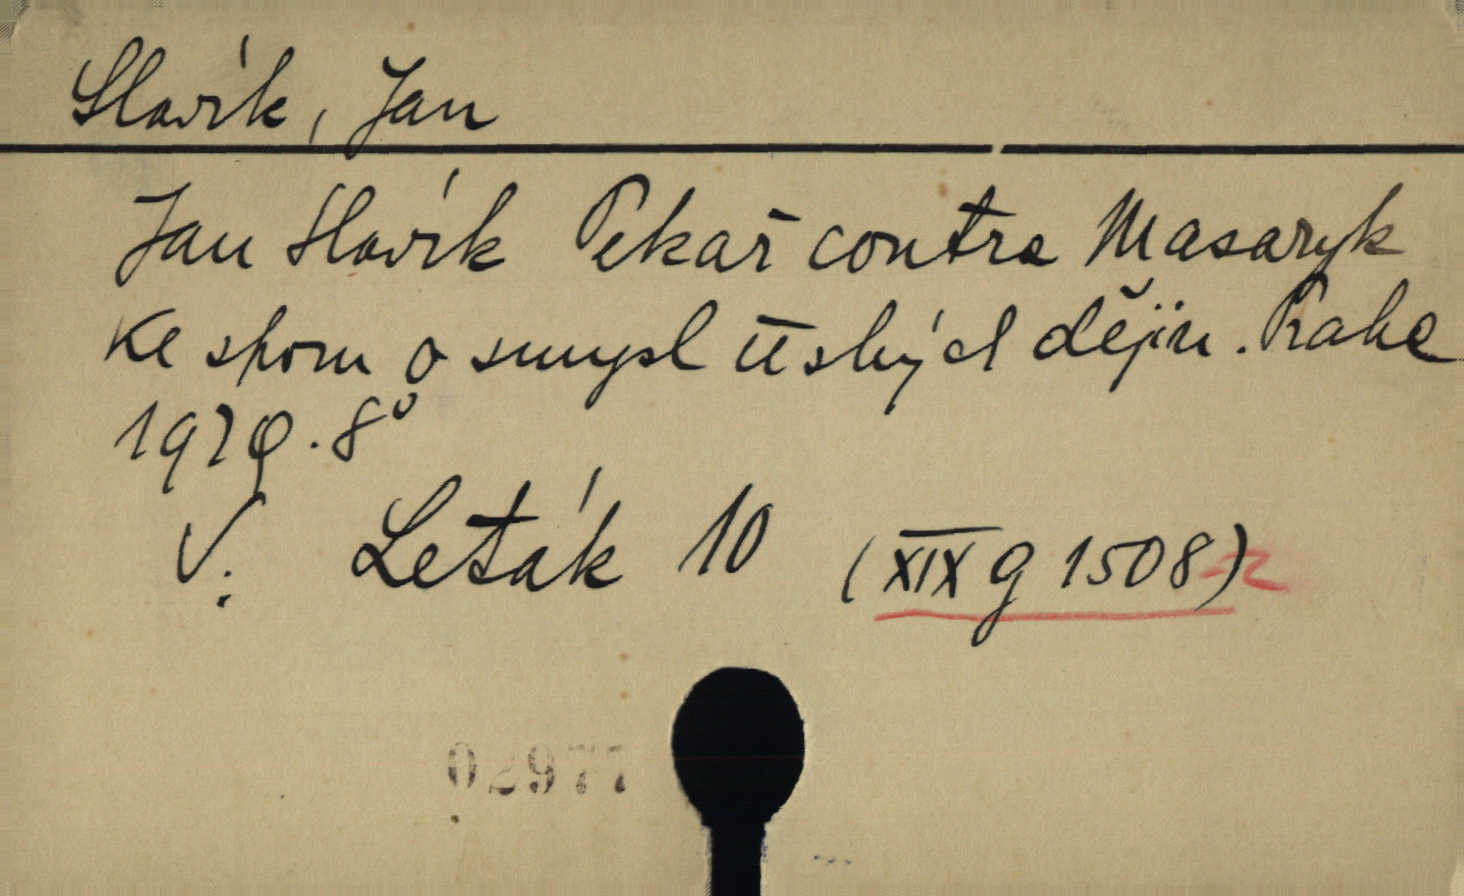 Slavík, Jan
Jan Slavík Pekař contra Masaryk
Ke sporu o smysl českých dějin. Praha
1929. 8°
V. Leták 10 (XIX g 1508)
02977